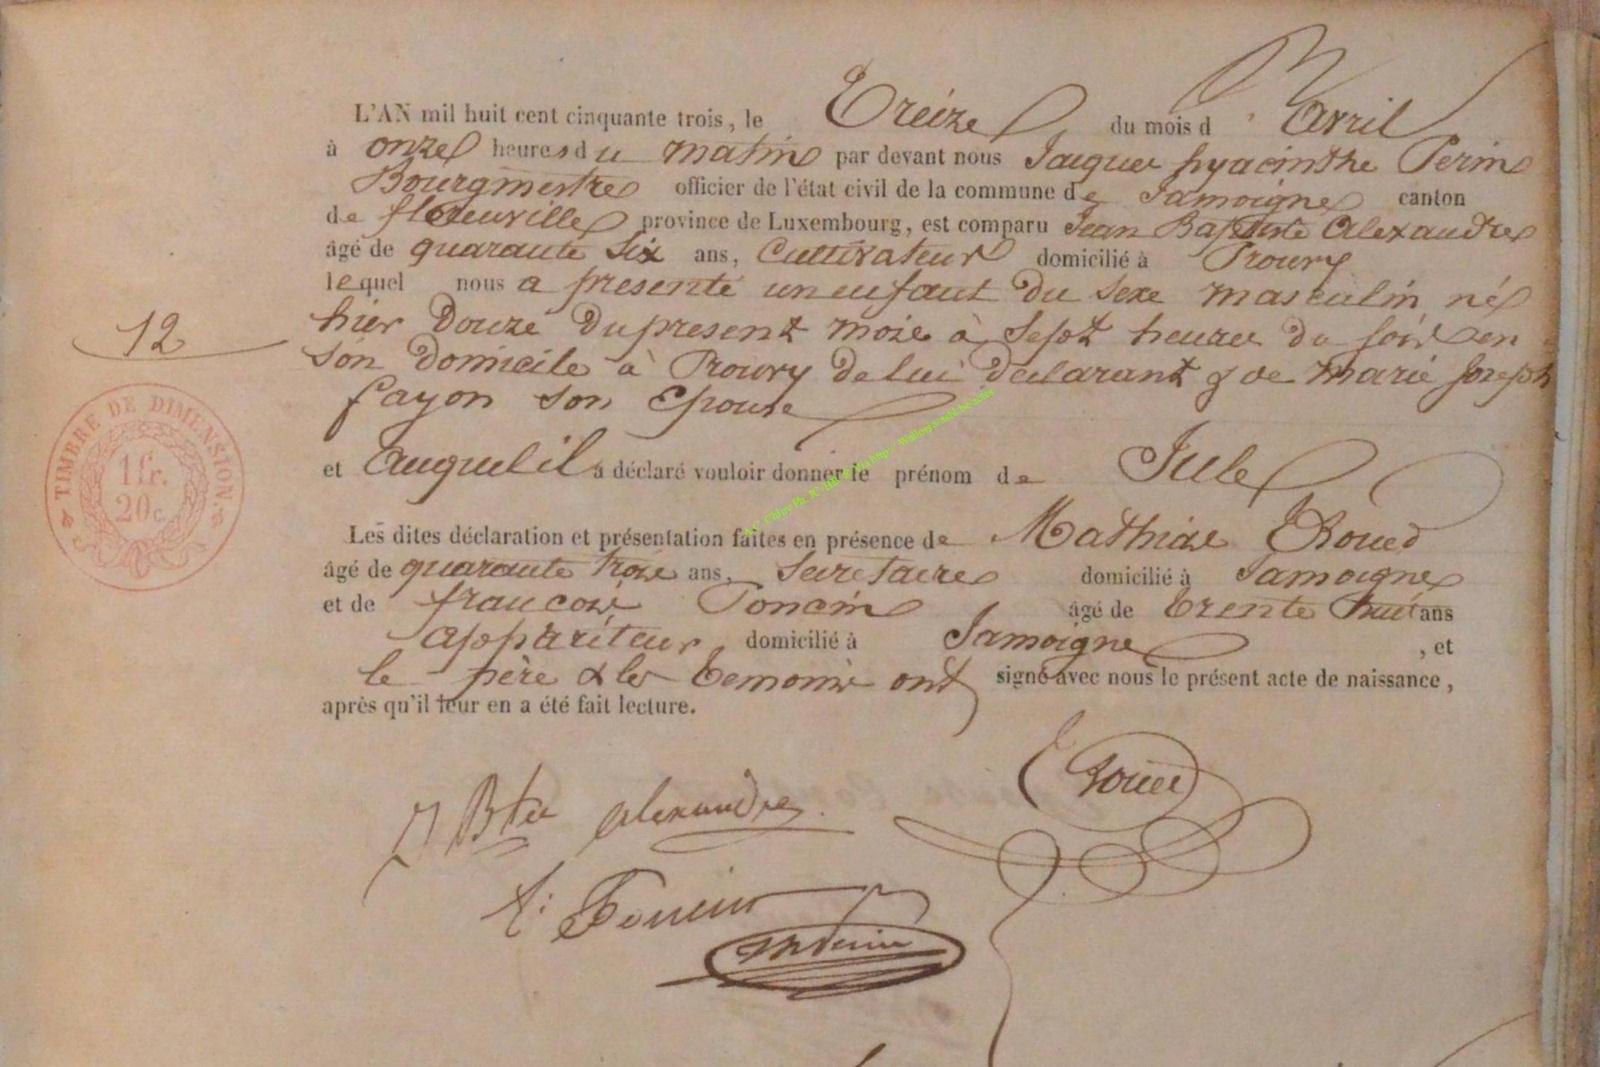 L'AN mil huit cent cinquante trois, le Treize du mois d'Avril
à onze heures du matin par devant nous Jacques hyacinthe Perin
Bourgmestre officier de l'état civil de la commune de Jamoigne canton
de florenville province de Luxembourg, est comparu Jean Baptiste Alexandre
âgé de quarante Six ans, Cultivateur domicilié à Prouvy
lequel nous a présenté un enfant du sexe masculin né
12
hier Douze du present mois à Sept heures du soir en
son domicile à Prouvy de lui declarant & de Marie Joseph
fayon son Epouse
TIMBRE DE DIMENSION.
1 fr.
20 c.
et auquel il a déclaré vouloir donner le prénom de Jule
Les dites déclaration et présentation faites en présence de Mathias
âgé de quarante trois ans, Secretaire domicilié à Jamoigne
et de francois Poncin âgé de trente huit ans
appariteur domicilié à Jamoigne, et
le père & les temoins ont signé avec nous le présent acte de naissance,
après qu'il leur en a été fait lecture.
J Bte alexandre
Poncin